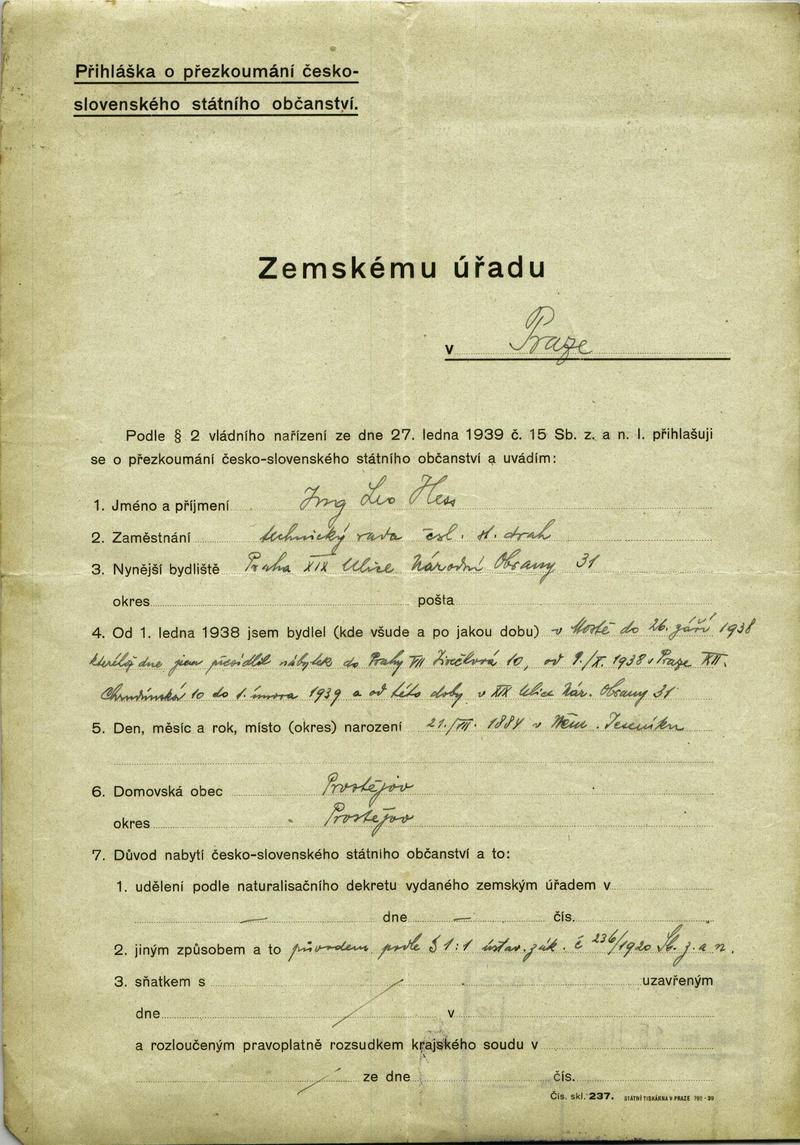 Přihláška o přezkoumání česko-
slovenského státního občanství.
Zemskému úřadu
v Praze
Podle § 2 vládního nařízení ze dne 27. ledna 1939 č. 15 Sb. z. a n. l. přihlašuji
se o přezkoumání česko-slovenského státního občanství a uvádím:
1. Jméno a příjmení Ing Leo Hess
2. Zaměstnání technický rada čsl. st. drah
3. Nynější bydliště Praha XIX Ulice Národní Obrany 31
okres pošta
4. Od 1. ledna 1938 jsem bydlel (kde všude a po jakou dobu) v Mostě do 26. září 1938
kteréhož dne jsem přesídlil nábytek do Prahy VII 10, od 9./X. 1938 v Praze XII.
Chrudimská 10 do 1. února 1939 a od této doby v XIX Ulice Nár. Obrany 31
5. Den, měsíc a rok, místo (okres) narození 21./VII. 1884 v Něm. Jeseníku
6. Domovská obec Prostějov
okres Prostějov
7. Důvod nabytí česko-slovenského státního občanství a to:
1. udělení podle naturalisačního dekretu vydaného zemským úřadem v
— dne — čís.
2. jiným způsobem a to původem podle § 1:1 ústav. zák. č 236/1920 Sb. z. a n.
3. sňatkem s uzavřeným
dne v
a rozloučeným pravoplatně rozsudkem krajského soudu v
ze dne čís.
Čís. skl. 237. STÁTNÍ TISKÁRNA V PRAZE